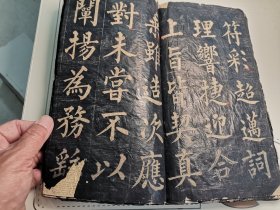 符彩超邁詞
理響捷迎合
上旨皆契真
乘雖造次應
對未嘗不以
闡揚為務繇